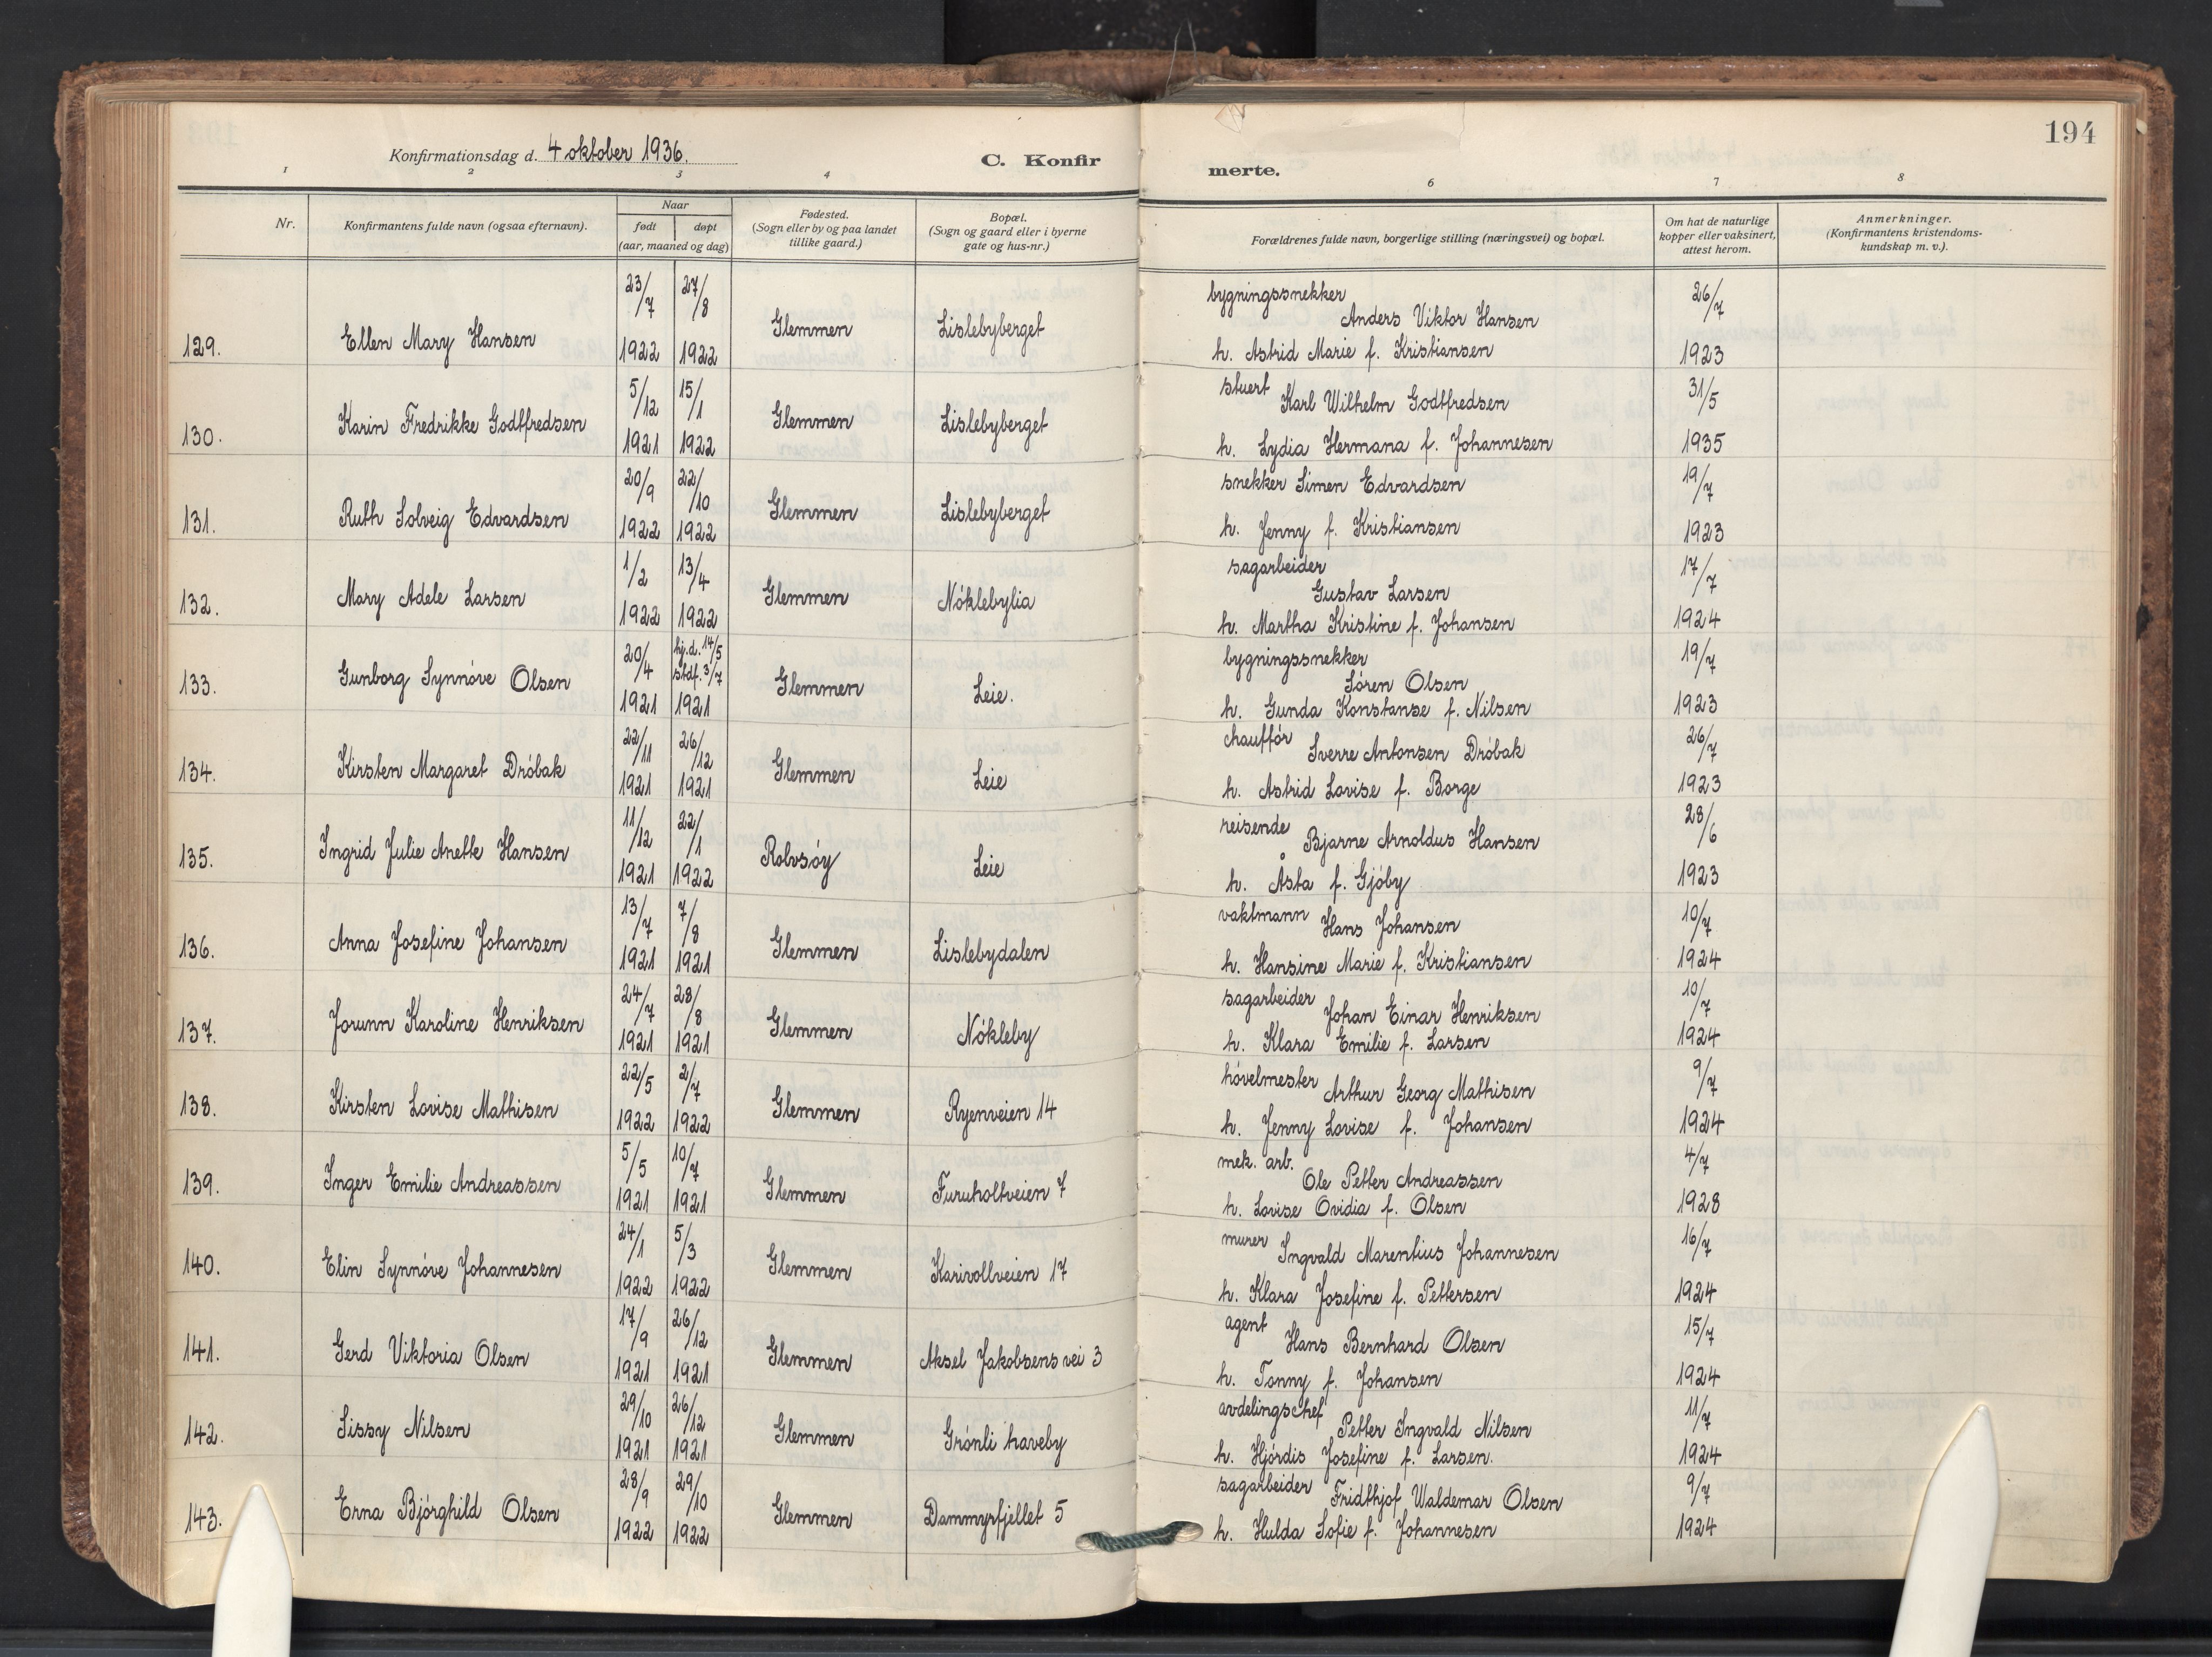 194
Konfirmationsdag d. 4 oktober 1936.
C. Konfirmerte.
1 2 3 4 6 7 8
Nr.
Konfirmantens fulde navn (ogsaa efternavn).
Naar
født døpt
(aar, maaned og dag)
Fødested.
(Sogn eller by og paa landet
tillike gaard.)
Bopæl.
(Sogn og gaard eller i byerne
gate og hus-nr.)
Forældrenes fulde navn, borgerlige stilling (næringsvei) og bopæl.
Om hat de naturlige
kopper eller vaksinert,
attest herom.
Anmerkninger.
(Konfirmantens kristendoms-
kundskap m. v.).
129. Ellen Mary Hansen 23/7 1922 27/8 1922 Glemmen Lislebyberget
bygningssnekker
Anders Viktor Hansen
h. Astrid Marie f. Kristiansen
26/7 1923
130. Karin Fredrikke Godtfredsen 5/12 1921 15/1 1922 Glemmen Lislebyberget
stuert Karl Wilhelm Godtfredsen
h. Lydia Hermana f. Johannesen
31/5 1935
131. Ruth Solveig Edvardsen 20/9 1922 22/10 1922 Glemmen Lislebyberget
snekker Simen Edvardsen
h. Jenny f. Kristiansen
19/7 1923
132. Mary Adele Larsen 1/2 1922 13/4 1922 Glemmen Nóklebylia
sagarbeider
Gustav Larsen
h. Martha Kristine f. Johansen
17/7 1924
133. Gunborg Synnóve Olsen 20/4 1921 hj.d. 14/5 stdf. 3/7 1921 Glemmen Leie.
bygningssnekker
Sóren Olsen
h. Gunda Konstanse f. Nilsen
19/7 1923
134. Kirsten Margaret Dróbak 22/11 1921 26/12 1921 Glemmen Leie
chauffór Sverre Antonsen Dróbak
h. Astrid Lovise f. Borge
26/7 1923
135. Ingrid Julie Anette Hansen 11/12 1921 22/1 1922 Rolvsóy Leie
reisende Bjarne Arnoldus Hansen
h. Åsta f. Gjóby
28/6 1923
136. Anna Josefine Johansen 13/7 1921 7/8 1921 Glemmen Lislebydalen
vaktmann Hans Johansen
h. Hansine Marie f. Kristiansen
10/7 1924
137. Jorunn Karoline Henriksen 24/7 1921 28/8 1921 Glemmen Nókleby
sagarbeider Johan Einar Henriksen
h. Klara Emilie f. Larsen
10/7 1924
138. Kirsten Lovise Mathisen 22/5 1922 2/7 1922 Glemmen Ryenveien 14
hóvelmester Arthur Georg Mathisen
h. Jenny Lovise f. Johansen
9/7 1924
139. Inger Emilie Andreassen 5/5 1921 10/7 1921 Glemmen Furuholtveien 7
mek. arb.
Ole Petter Andreassen
h. Lovise Ovidia f. Olsen
4/7 1928
140. Elin Synnóve Johannesen 24/1 1922 5/3 1922 Glemmen Karivollveien 17
murer Ingvald Marentius Johannesen
h. Klara Josefine f. Pettersen
16/7 1924
141. Gerd Viktoria Olsen 17/9 1921 26/12 1921 Glemmen Aksel Jakobsens vei 3
agent Hans Bernhard Olsen
h. Tonny f. Johansen
15/7 1924
142. Sissy Nilsen 29/10 1921 26/12 1921 Glemmen Grónli haveby
avdelingschef Petter Ingvald Nilsen
h. Hjórdis Josefine f. Larsen.
11/7 1924
143. Erna Bjórghild Olsen 28/9 1922 29/10 1922 Glemmen Dammyrfjellet 5
sagarbeider Fridthjof Waldemar Olsen
h. Hulda Sofie f. Johannesen
9/7 1924